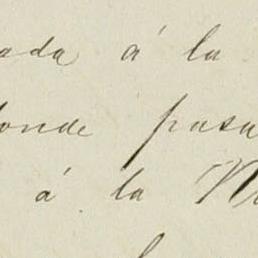 ada á la
onde pasa
á la